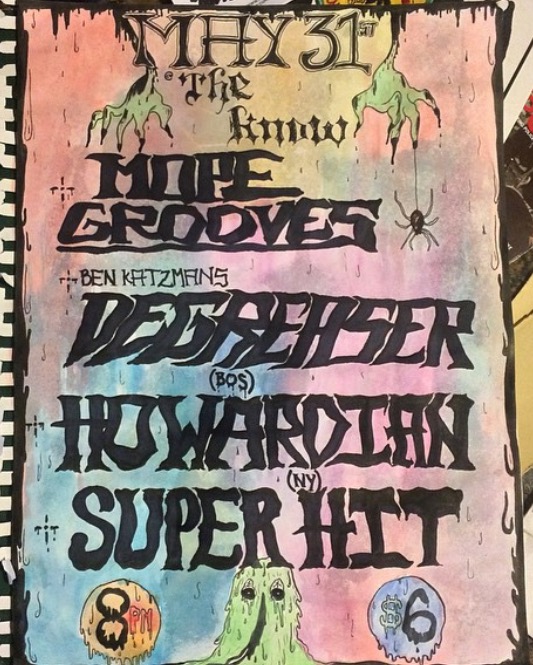 MAY 31st
@ The
Know
MOPE
GROOVES
BEN KATZMANS
DEGREASER
(BOS)
HOWARDIAN
(NY)
SUPER HIT
8PM
$6